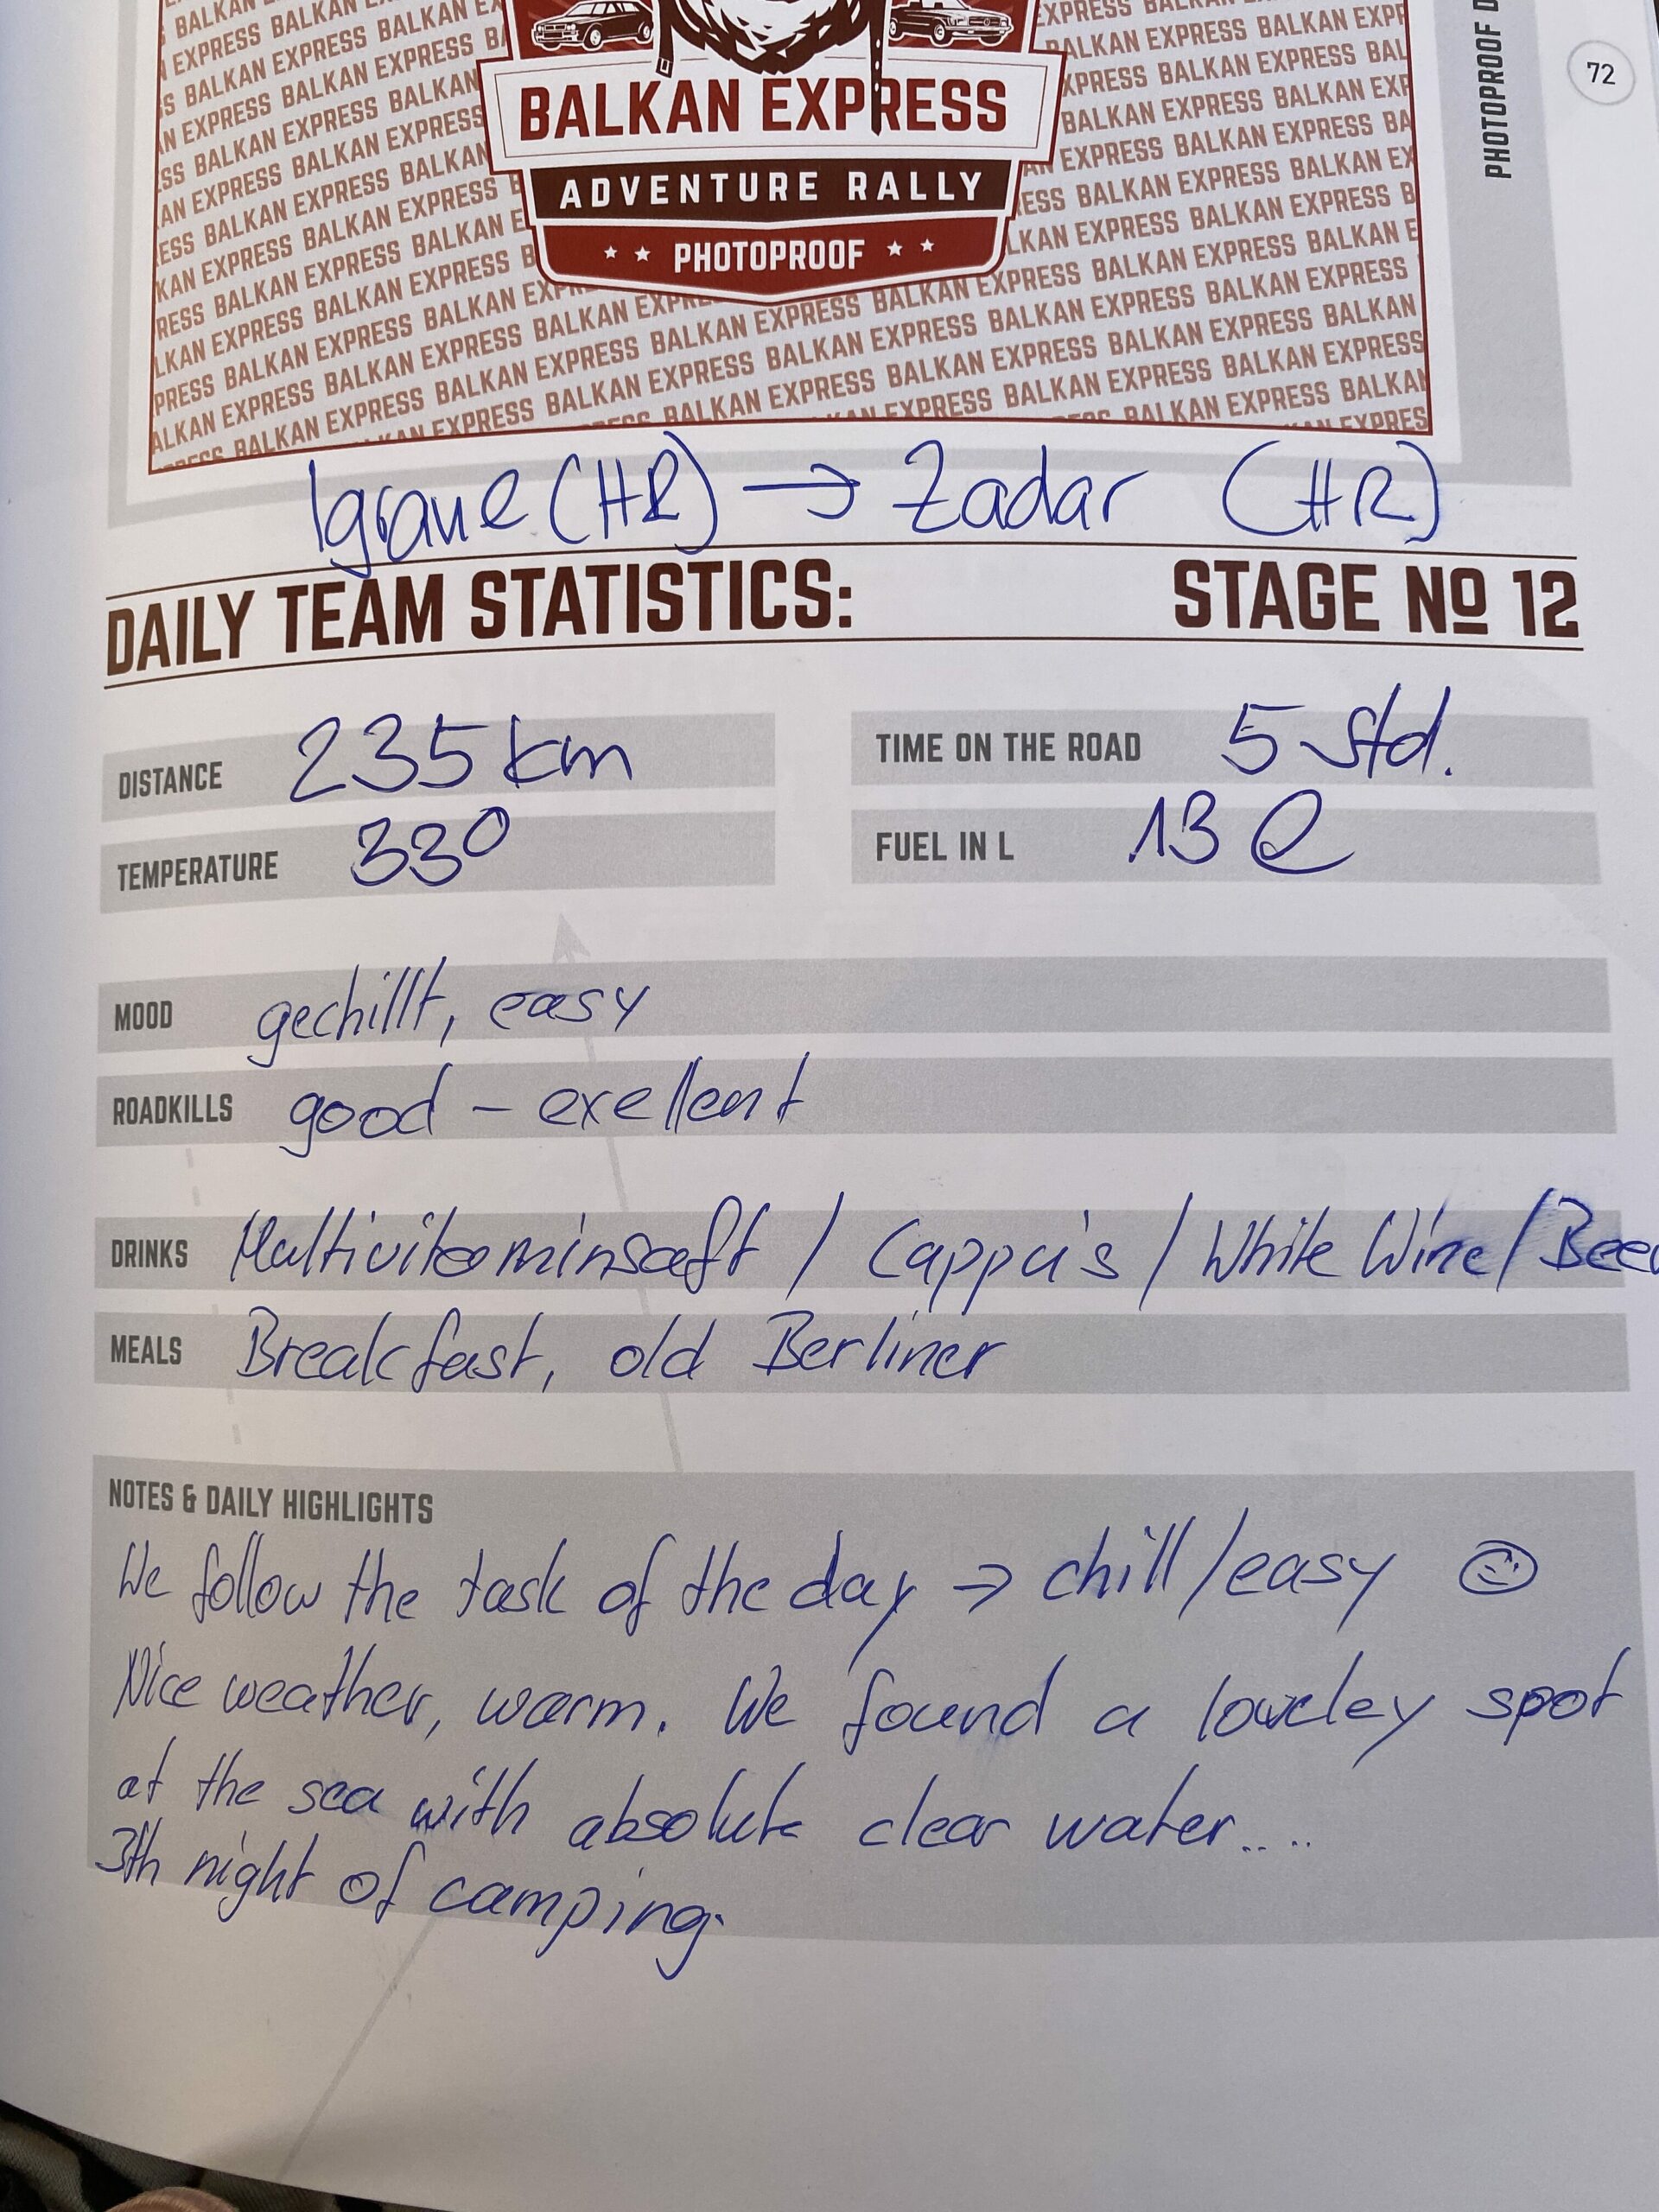 BALKAN EXPRESS
ADVENTURE RALLY
PHOTOPROOF
PHOTOPROOF
72
Igrane (HR) → Zadar (HR)
DAILY TEAM STATISTICS: STAGE Nº 12
DISTANCE 235 km
TIME ON THE ROAD 5 Std.
TEMPERATURE 33°
FUEL IN L 13 l
MOOD gechillt, easy
ROADKILLS good - exellent
DRINKS Multivitaminsaft / Cappu's / White Wine / Beer
MEALS Breakfast, old Berliner
NOTES & DAILY HIGHLIGHTS
We follow the task of the day → chill/easy ☺
Nice weather, warm. We found a loveley spot
at the sea with absolute clear water....
3th night of camping.